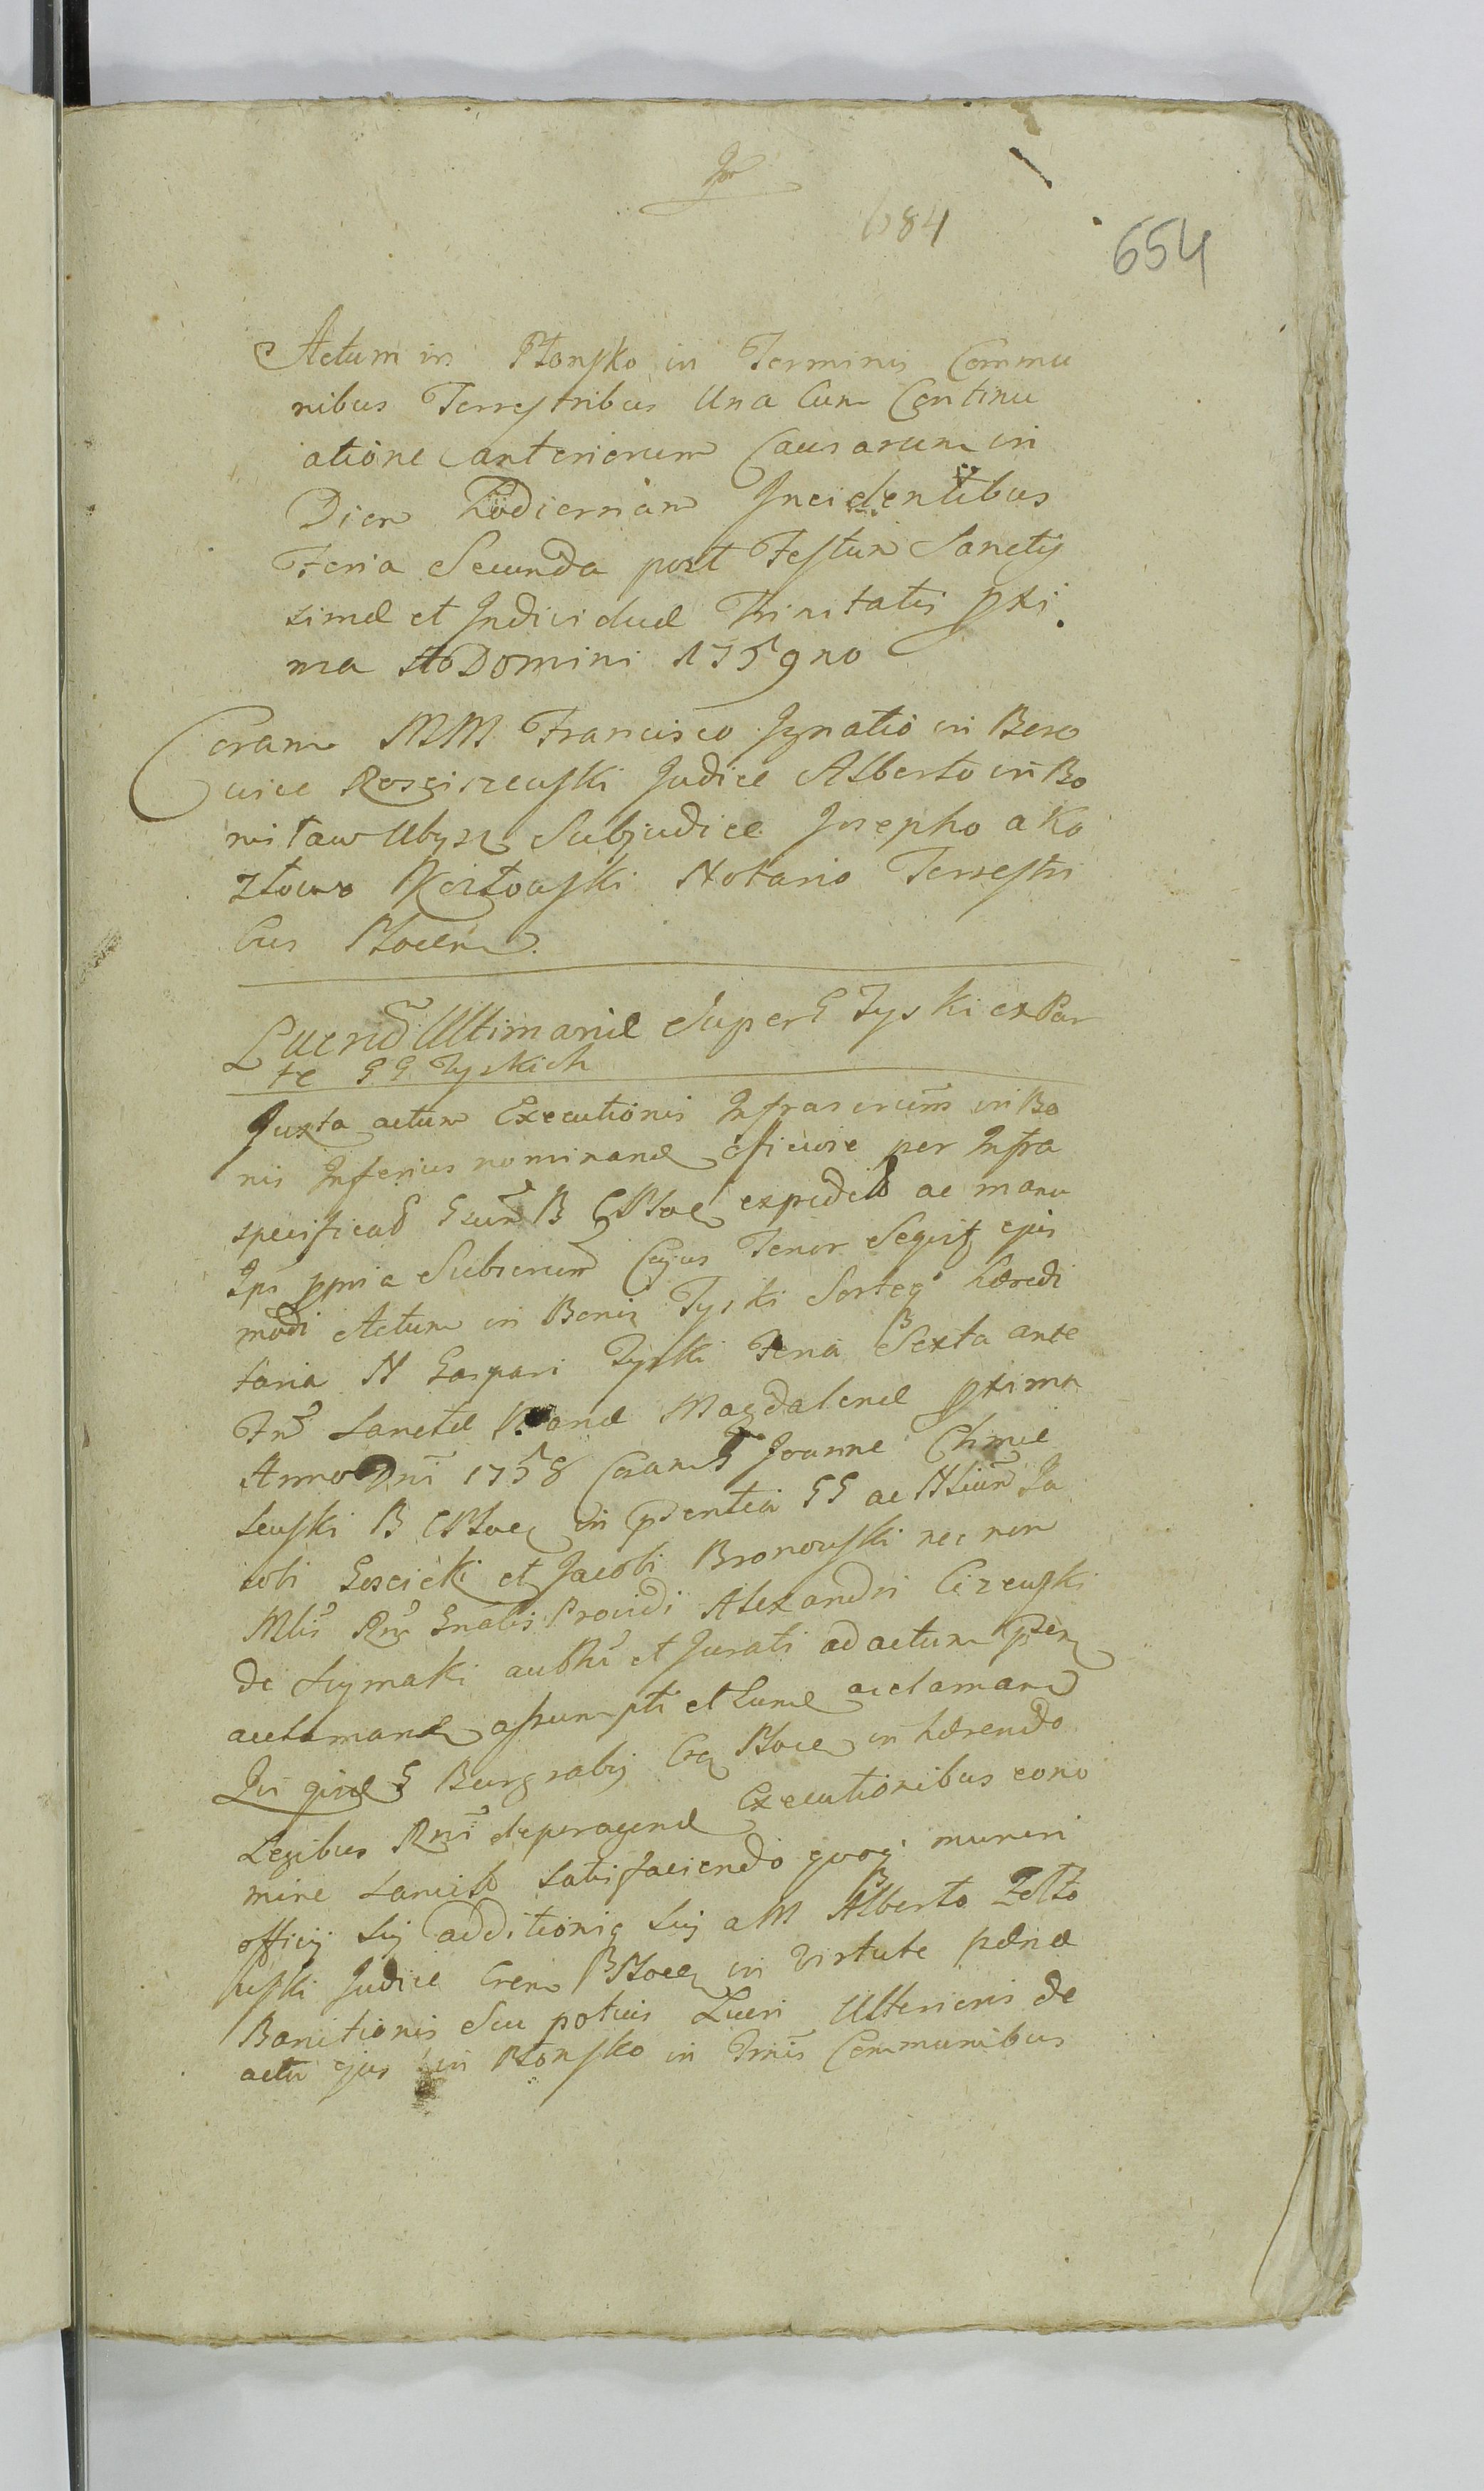 684
654
Actum in Płonsko in Terminis Commu
nibus Terrestribus Una Cum Continu
atione anteriorum Causarum in
Diem hodiernam Incidentibus
Feria Secunda post Festum Sanctis
simæ et Individuæ Trinitatis pxi
ma Ao Domini 1759no
Coram MM Francisco Ignatio in
Rosciszewski Judice Alberto in Bo
mitaw Ubysz Subjudice Josepho a Ko
złowo Kozłowski Notario Terrestri
bus Płocen
Luend Ultimariæ Super G Tyski ex Par
te GG Tyskich
Juxta actum Executionis Infrascrum in Bo
nis Inferius nominand officiose per Infra
specificad B CPloc expedit ac manu
Ips ppria Subscrum Cujus Tenor Seqtr ejus
modi Actum in Bonis Tyski Sorteq hæredi
taria N Gaspari Tyski Feria Sexta ante
Fm Sanctæ Mariæ Magdalenæ pxima
Anno Dni 1758 Coram G Joanne Chmie
lewski B CPloc in psentia GG ac Nlium Ja
cobi Goscicki et Jacobi Bronowski nec non
Mlis Rni Gnalis Providi Alexandri Cizewski
de Szymaki authi et Jurati ad actum psen
acclamand assumpti et acclamand
Qui G Burgrabij Cra Ploce in hærendo
Legibus Rni deperagend Executionibus cono
mine sancit satisfaciendo quoq muneri
officij sij additioniq sij a M Alberto Zelto
wski Judice Cren Ploce in virtute pænæ
Banitionis Seu potius Lueri Ulterioris de
actu ejus in Płonsko in Tmis Communibus